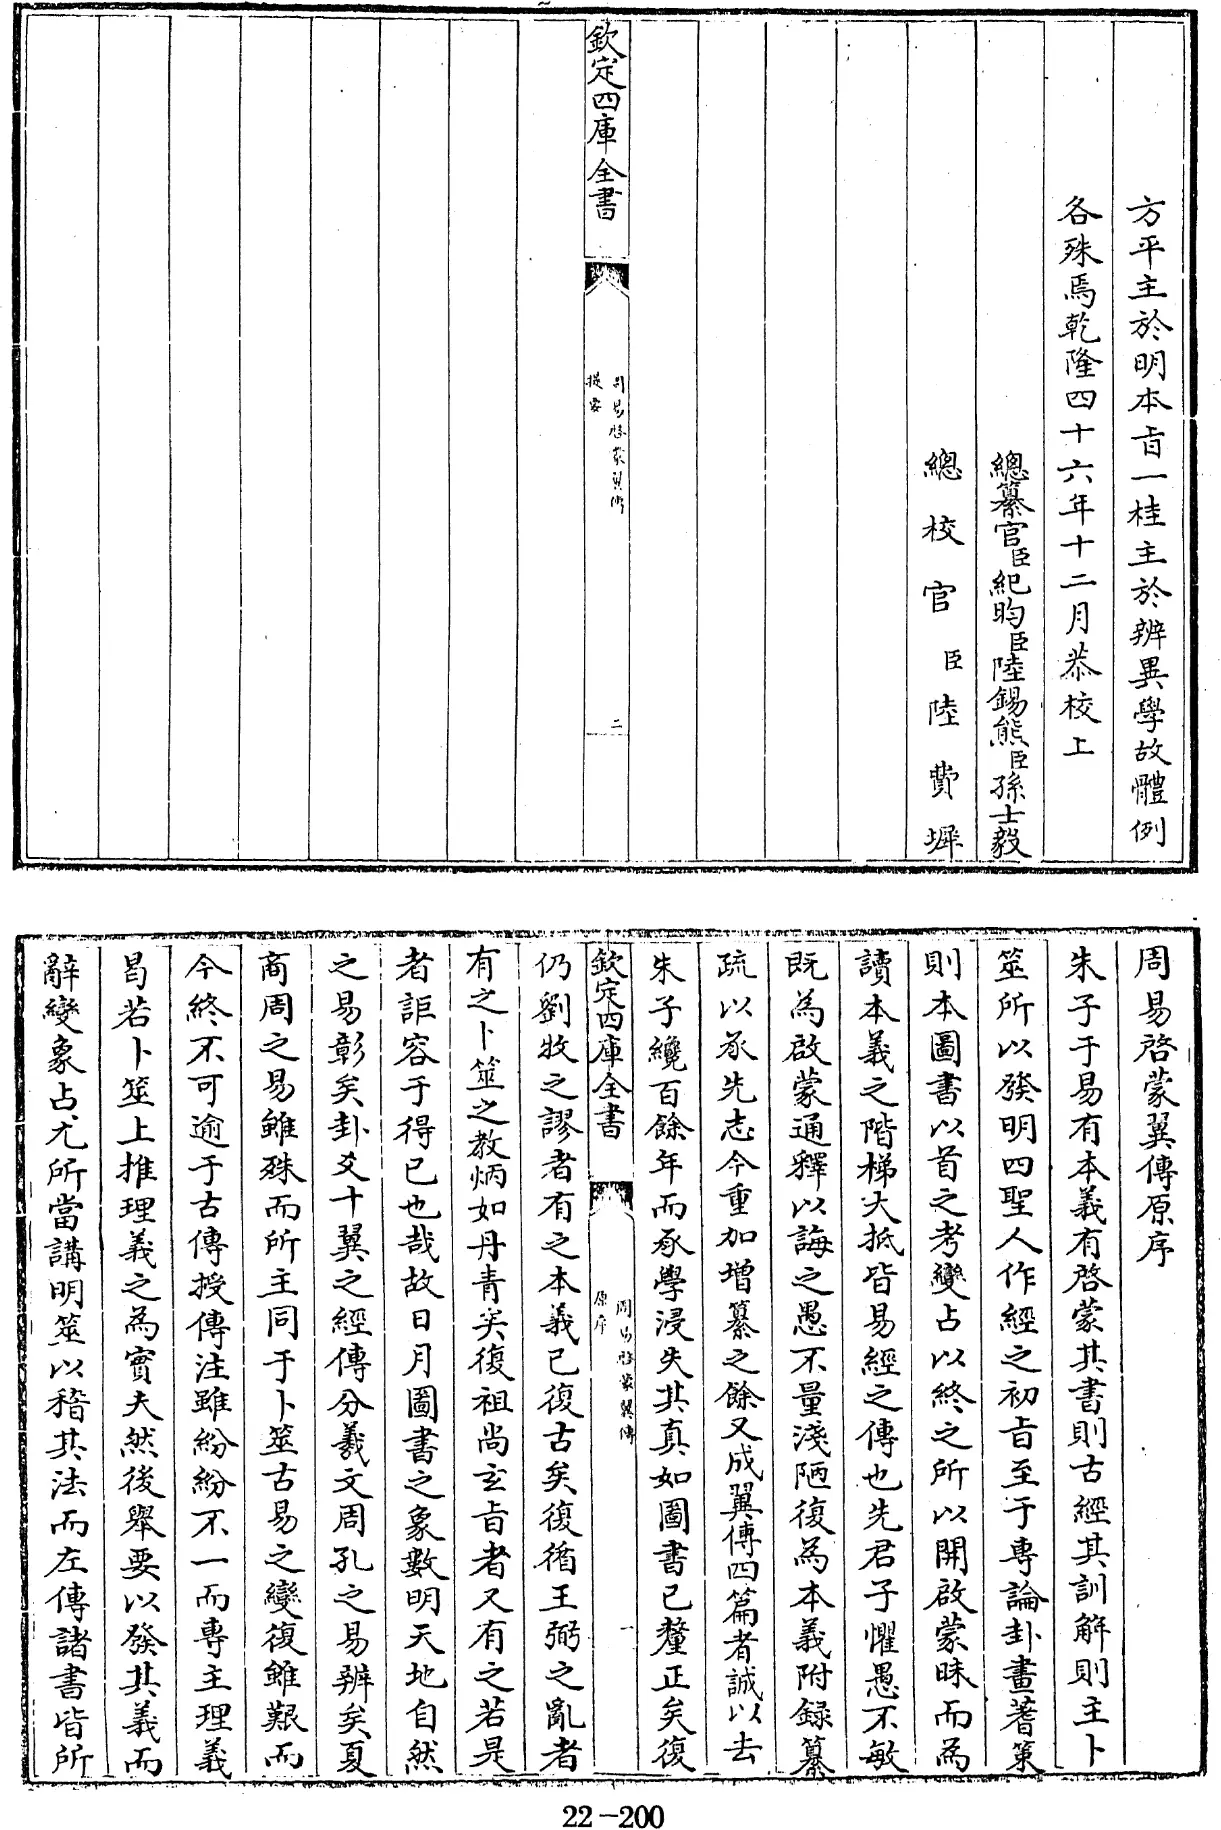 方平主於明本㫖一桂主於辨異學故體例
各殊焉乾隆四十六年十二月恭校上
總纂官臣紀昀臣陸錫熊臣孫士毅
總校官臣陸費墀
欽定四庫全書
周易啓蒙翼傳
提要
二
周易啓蒙翼傳原序
朱子于易有本義有啓蒙其書則古經其訓解則主卜
筮所以發明四聖人作經之初㫖至于專論卦畫蓍策
則本圖書以首之考變占以終之所以開啟蒙昧而為
讀本義之階梯大抵皆易經之傳也先君子懼愚不敏
既為啟蒙通釋以誨之愚不量淺陋復為本義附録纂
疏以承先志今重加増纂之餘又成翼傳四篇者誠以去
朱子纔百餘年而承學浸失其真如圖書已釐正矣復
欽定四庫全書
周易啓蒙翼傳
原序
一
仍劉牧之謬者有之本義已復古矣復循王弼之亂者
有之卜筮之教炳如丹青矣復祖尚玄㫖者又有之若是
者詎容于得已也哉故日月圖書之象數明天地自然
之易彰矣卦爻十翼之經傳分羲文周孔之易辨矣夏
商周之易雖殊而所主同于卜筮古易之變復雖艱而
今終不可逾于古傳授傳注雖紛紛不一而專主理義
曷若卜筮上推理義之為實夫然後舉要以發其義而
辭變象占尤所當講明筮以稽其法而左傳諸書皆所
22-200